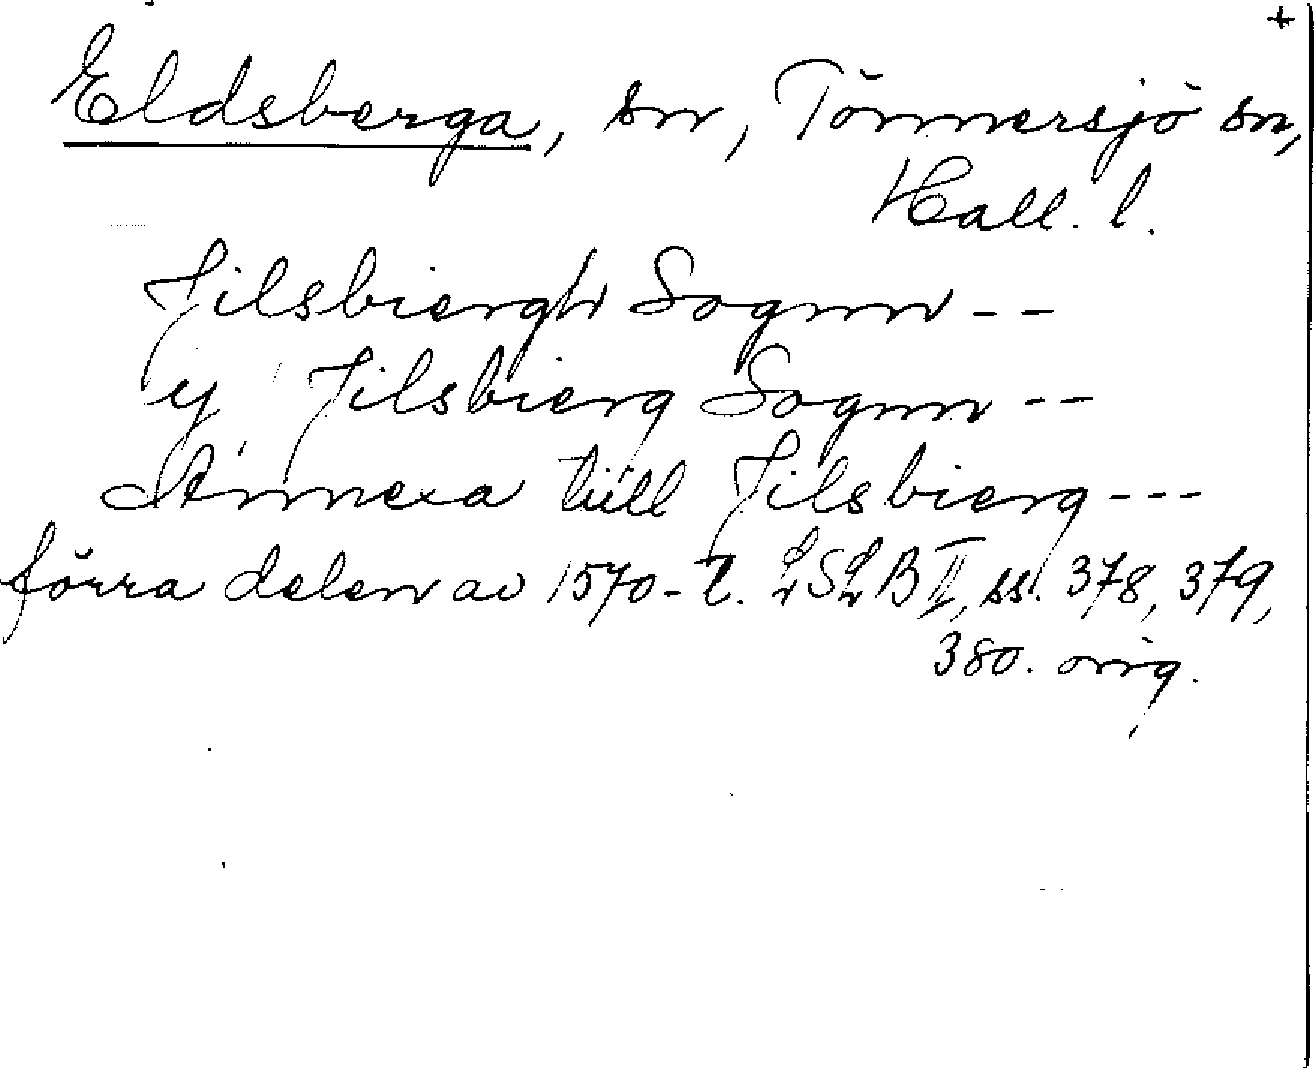 +
Eldsberga, sn, Tönnersjö sn,
Hall. l.
Jilsbiergh Sognn --
y Jilsbierg Sognn --
Annexa till Jilsbierg ---
förra delen av 1570-t. LSLB II, ss. 378, 379,
380. orig.